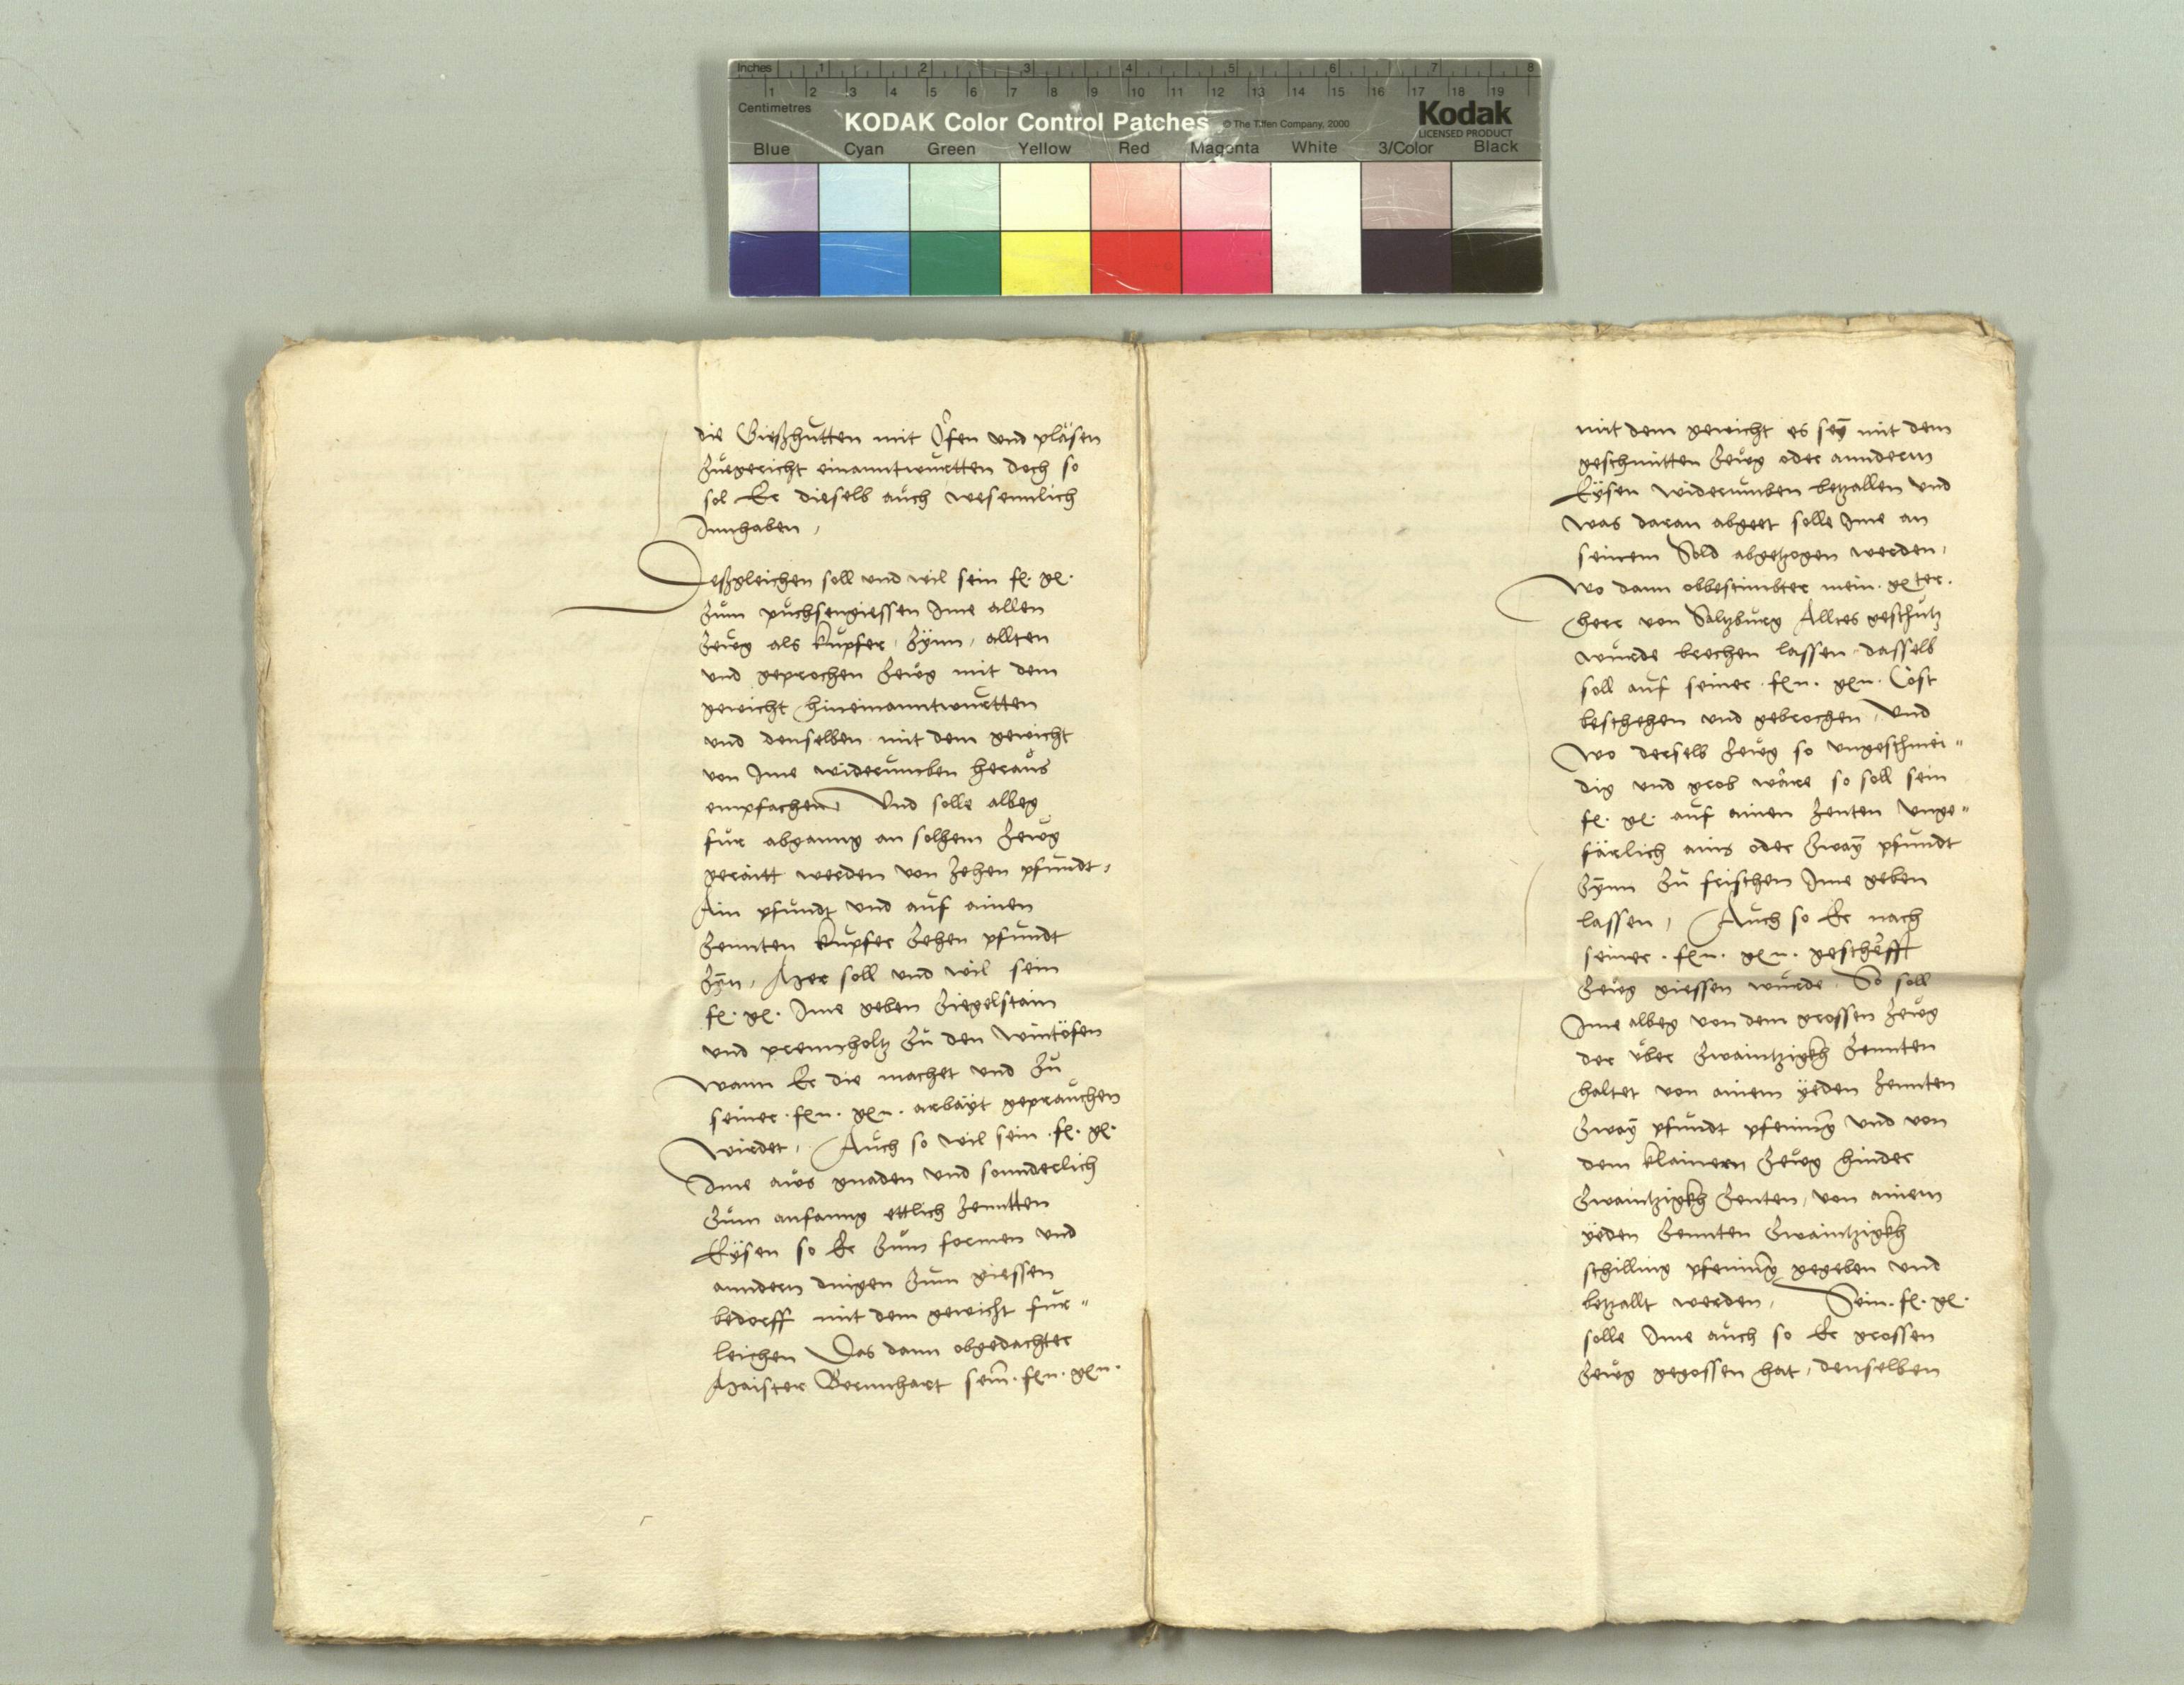 Inches 1 2 3 4 5 6 7 8
Centimetres 1 2 3 4 5 6 7 8 9 10 11 12 13 14 15 16 17 18 19
KODAK Color Control Patches © The Tiffen Company, 2000 Kodak
LICENSED PRODUCT
Blue Cyan Green Yellow Red Magenta White 3/Color Black
die Gieszhutten mit Öfen und pläsen
Zuegericht einanntwurtten doch so
sol Er dieselb auch wesennlich
Innhaben,
Deszgleichen soll und wil sein fl. gl.
Zum puchsengiessen Ime allen
Zeug als kupfer, Zÿnn, allten
und geprochen Zeug mit dem
gewicht hineinanntwurtten
und denselben mit dem gewicht
von Ime widerumben heraus
empfachen Und solle albeg
fur abganng an solhem Zeug
geraitt werden von Zehen pfundt,
Ain pfundt und auf ainen
Zennten kupfer Zehen pfundt
Zÿn, Mer soll und wil sein
fl. gl. Ime geben Ziegelstain
und prennholtz Zu den wintöfen
Wann Er die machet und Zu
seiner fln. gln. arbayt geprauchen
wirdet, Auch so wil sein fl. gl.
Ime aus gnaden und sonnderlich
Zum anfanng ettlich Zenntten
Eÿsen so Er Zum formen und
anndern dingen Zum giessen
bedorff mit dem gewicht fur"
leichen Das dann obgedachter
Maister Bernnhart sein. fln. gln.
mit dem gewicht es seÿ mit dem
geschmitten Zeug oder annderm
Eÿsen widerumben betzallen und
was daran abgeet solle Ime an
seinem Sold abgetzogen werden,
Wo dann obbestimbter mein. glter.
herr von Saltzburg Alltes geschutz
wurde brechen lassen dasselb
soll auf seiner fln. gln. Cost
beschehen und gebrochen, Und
Wo derselb Zeug so ungeschmei"
dig und grob wäre so soll sein
fl. gl. auf ainen Zenten unge"
färlich ains oder Zwaÿ pfundt
Zÿnn Zu frischen Ime geben
lassen, Auch so Er nach
seiner. fln. gln. geschefft
Zeug giessen wurde So soll
Ime albeg von dem grossen Zeug
der über Zwaintzigkh Zennten
haltet von ainem ÿeden Zennten
Zwaÿ pfundt pfening und von
dem klainern Zeug hinder
Zwaintzigkh Zenten, von ainem
ÿeden Zennten Zwaintzigkh
schilling pfening gegeben und
betzallt werden, Sein. fl. gl.
solle Ime auch so Er grossen
Zeug gegossen hat, denselben